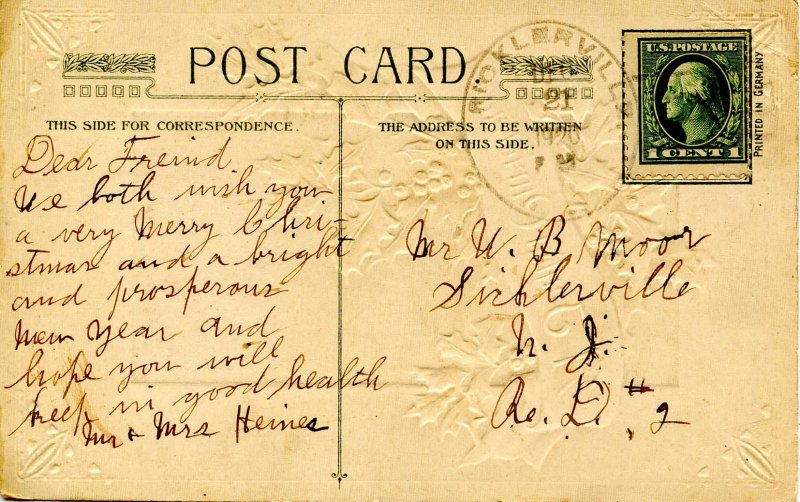 POST CARD.
THIS SIDE FOR CORRESPONDENCE.
Dear Freind
We both wish you
a very Merry Chri-
stmas and a bright
and prosperous
New Year and
hope you will
keep in good health
Mr + Mrs Heines
THE ADDRESS TO BE WRITTEN
ON THIS SIDE.
SICKLERVILLE
21
U.S. POSTAGE
1 CENT 1
PRINTED IN GERMANY
Mr W. B Moor
Sicklerville
N. J.
R. D. #2